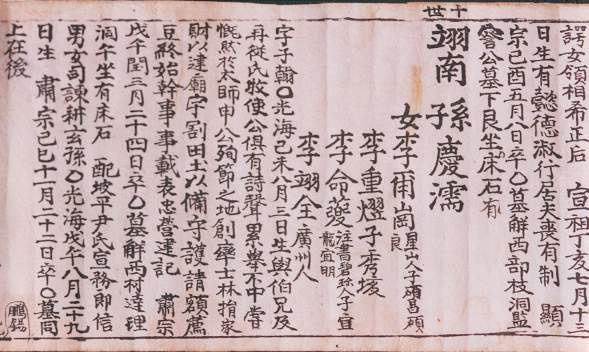 諤女領相希正后 宣祖丁亥七月十三
日生有懿德淑行居夫喪有制 顯
宗己酉五月八日卒○墓觧西部枝洞監
詧公墓下艮坐床石有
十世
翊南 子 慶濡
孫
女李爾崗 星山人子碩昌碩
良
李重燿子秀垓
李命夔
龍宜明
李翊全 廣州人
字子翰○光海己未八月三日生與伯兄及
再從氏牧使公俱有詩聲累擧不中嘗
慨然於太師申公殉節之地創率士林捐家
財以建廟宇割田土以備守護請額薦
豆終始幹事事載表忠營建記 肅宗
戊午閏三月二十四日卒○墓觧西村達理
洞午坐有床石 配坡平尹氏宣務郎信
男女司諫耕玄孫○光海戊午八月二十九
日生 肅宗己巳十一月二十二日卒○墓同
上在後